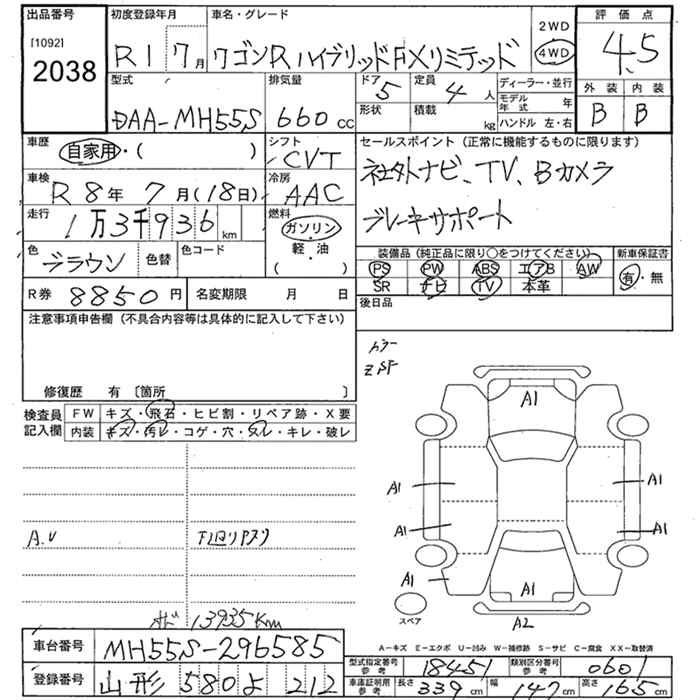 出品番号 初度登録年月 車名・グレード 2WD 評価点
[1092] 2038 R1 7月 ワゴンRハイブリッドFXリミテッド 4WD 4.5
型式 排気量 ドア 定員 ディーラー・並行 外装 内装
DAA-MH55S 660cc 5 4人 モデル年式 年 B B
形状 積載 kg ハンドル 左・右
車歴 自家用・( ) シフト CVT セールスポイント (正常に機能するものに限ります)
車検 R8年7月(18日) 冷房 AAC 社外ナビ、TV、Bカメラ
走行 1万3千936km 燃料 ガソリン・軽油 ( ) ブレーキサポート
色 ブラウン 色替 色コード
装備品 (純正品に限り○をつけてください) 新車保証書
PS PW ABS エアB AW 有・無
SR ナビ TV 本革
R券 8850円 名変期限 月 日 後日品
注意事項申告欄 (不具合内容等は具体的に記入して下さい)
修復歴 有 [箇所 ]
検査員記入欄 FW キズ・飛石・ヒビ割・リペア跡・X要
内装 キズ・汚レ・コゲ・穴・スレ・キレ・破レ
カラー
ZSF
A1
A1 A1
A1 A1
A.U
A1 A1
A2
スペア
13935Km
A-キズ E-エクボ U-凹み W-補修跡 S-サビ C-腐食 XX-取替済
車台番号 MH55S-296585
型式指定番号 参考 18451 類別区分番号 参考 0601
登録番号 山形 580 よ 212
車庫証明用 参考 長さ 339cm 幅 147cm 高さ 165cm